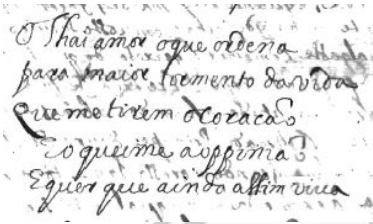 O Thai amor oque ordena
para maior tormento da vida
Que me tirem o Coração
Eo queime a
E quer que aindo assim viva